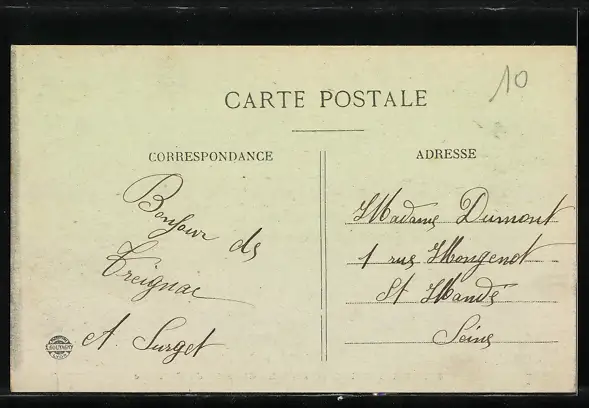 10
CARTE POSTALE
CORRESPONDANCE
ADRESSE
Bonjour de
Treignac
A. Surget
Madame Dumont
1 rue Mongenot
St Mandé
Seine